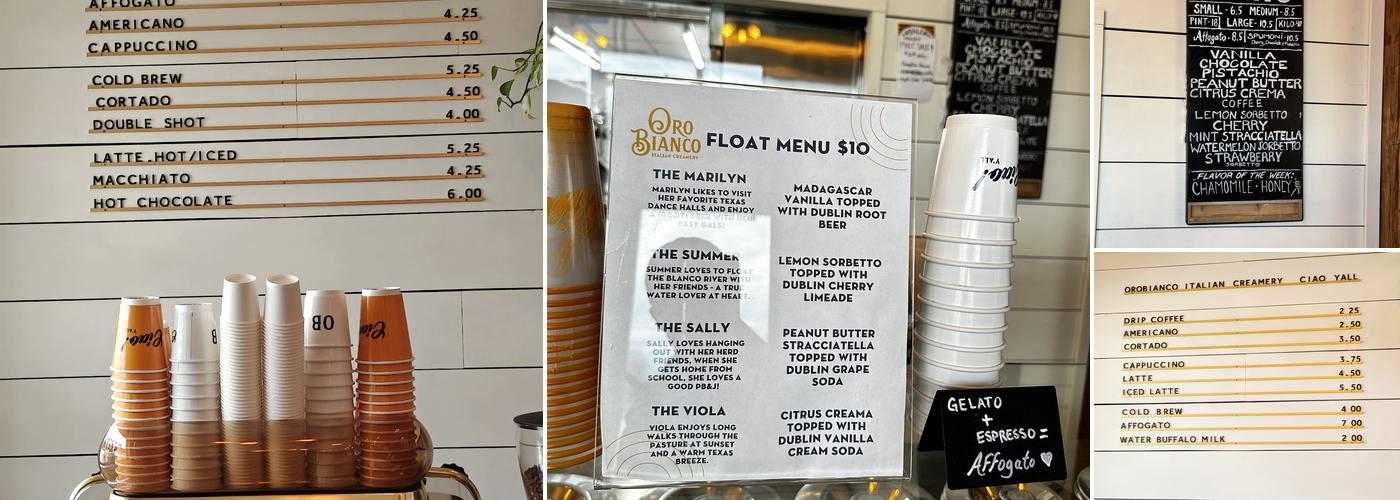 AFFOGATO
AMERICANO 4.25
CAPPUCCINO 4.50
COLD BREW 5.25
CORTADO 4.50
DOUBLE SHOT 4.00
LATTE.HOT/ICED 5.25
MACCHIATO 4.25
HOT CHOCOLATE 6.00
Ciao!
Y'ALL
OB
Ciao!
ORO
BIANCO
ITALIAN CREAMERY
FLOAT MENU $10
THE MARILYN
MARILYN LIKES TO VISIT
HER FAVORITE TEXAS
DANCE HALLS AND ENJOY
A (ROOT) BEER WITH HER
BEST GALS!
MADAGASCAR
VANILLA TOPPED
WITH DUBLIN ROOT
BEER
THE SUMMER
SUMMER LOVES TO FLOAT
THE BLANCO RIVER WITH
HER FRIENDS - A TRUE
WATER LOVER AT HEART.
LEMON SORBETTO
TOPPED WITH
DUBLIN CHERRY
LIMEADE
THE SALLY
SALLY LOVES HANGING
OUT WITH HER HERD
FRIENDS, WHEN SHE
GETS HOME FROM
SCHOOL, SHE LOVES A
GOOD PB&J!
PEANUT BUTTER
STRACCIATELLA
TOPPED WITH
DUBLIN GRAPE
SODA
THE VIOLA
VIOLA ENJOYS LONG
WALKS THROUGH THE
PASTURE AT SUNSET
AND A WARM TEXAS
BREEZE.
CITRUS CREAMA
TOPPED WITH
DUBLIN VANILLA
CREAM SODA
Ciao!
Y'ALL
GELATO
+
ESPRESSO =
Affogato
SMALL - 6.5 MEDIUM - 8.5
PINT-18 LARGE-10.5 KILO
Affogato - 8.5 SPUMONI-10.5
VANILLA
CHOCOLATE
PISTACHIO
PEANUT BUTTER
CITRUS CREMA
COFFEE
LEMON SORBETTO
CHERRY
MINT STRACCIATELLA
WATERMELON SORBETTO
STRAWBERRY
SORBETTO
FLAVOR OF THE WEEK:
CHAMOMILE - HONEY
OROBIANCO ITALIAN CREAMERY CIAO YALL
DRIP COFFEE 2 25
AMERICANO 2.50
CORTADO 3.50
CAPPUCCINO 3.75
LATTE 4.50
ICED LATTE 5.50
COLD BREW 4 00
AFFOGATO 7 00
WATER BUFFALO MILK 2 00